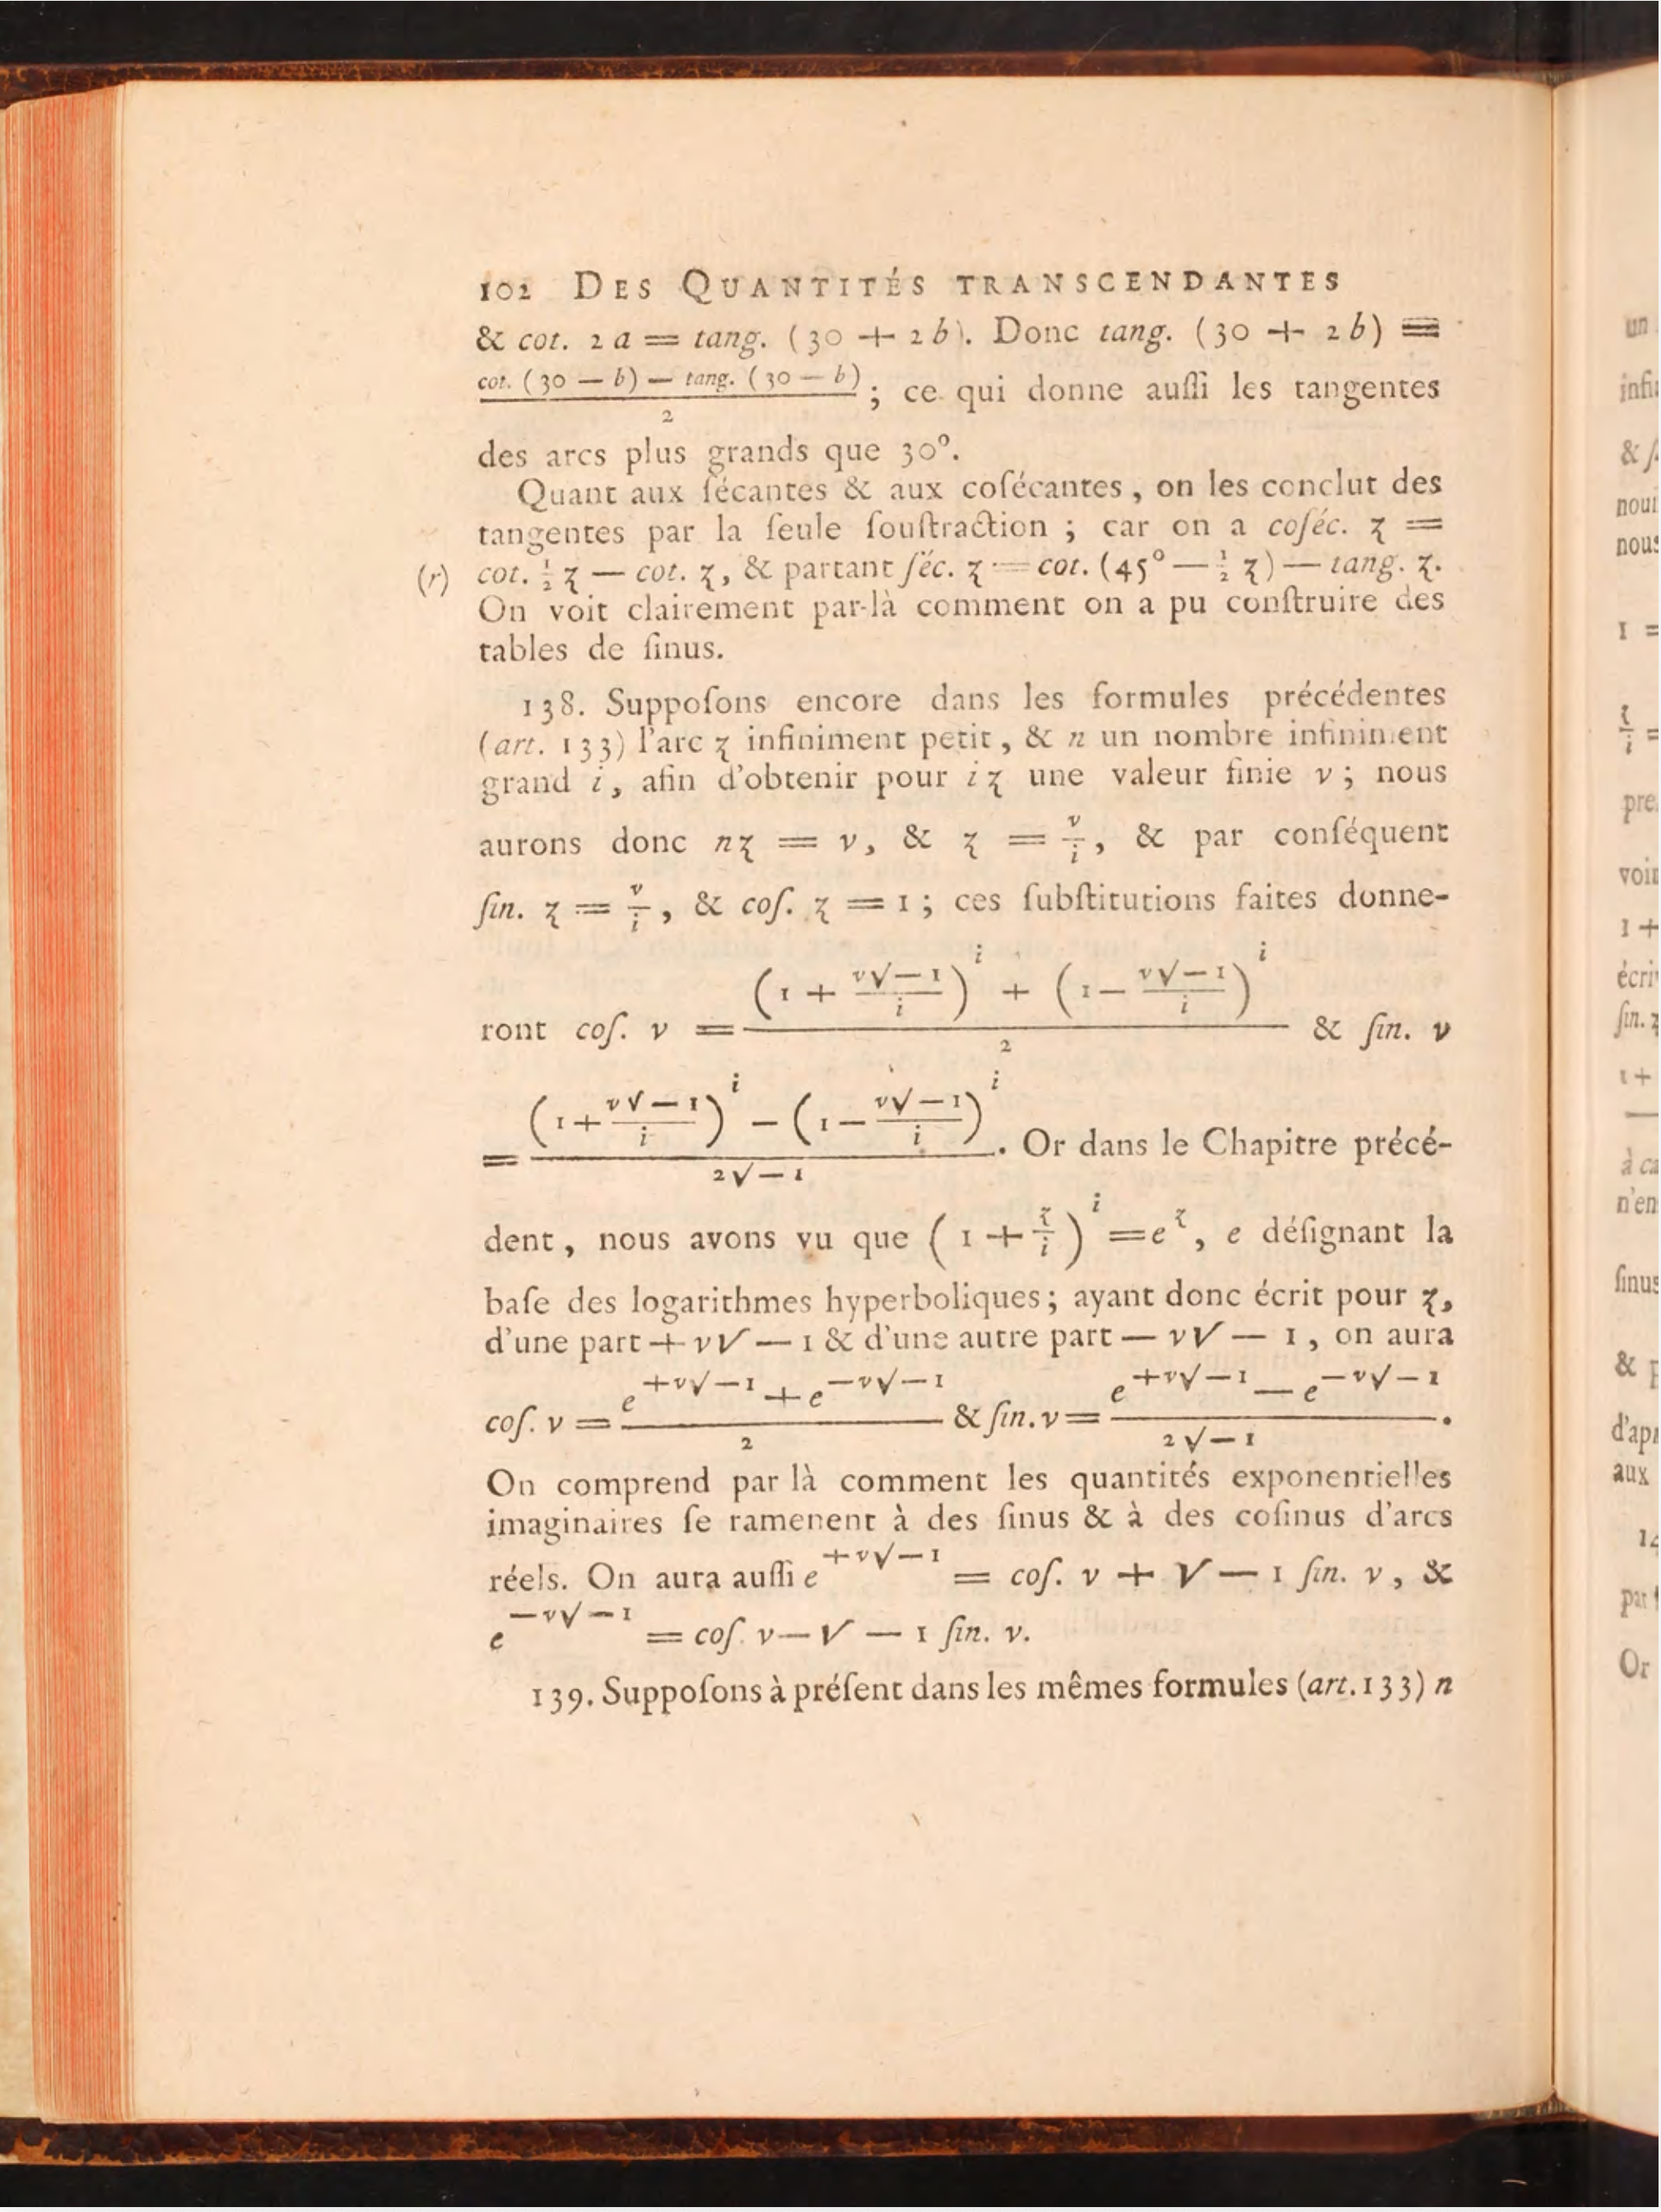 102 DES QUANTITÉS TRANSCENDANTES
& cot. 2 a = tang. (30 + 2 b). Donc tang. (30 + 2 b) =
cot. (30 — b) — tang. (30 — b) / 2 ; ce qui donne auſſi les tangentes
des arcs plus grands que 30°.
Quant aux ſécantes & aux coſécantes, on les conclut des
tangentes par la ſeule ſouſtraction ; car on a coſéc. z =
(r) cot. ½ z — cot. z, & partant ſéc. z = cot. (45° — ½ z) — tang. z.
On voit clairement par-là comment on a pu conſtruire des
tables de ſinus.
138. Suppoſons encore dans les formules précédentes
(art. 133) l'arc z infiniment petit, & n un nombre infiniment
grand i, afin d'obtenir pour i z une valeur finie v ; nous
aurons donc nz = v, & z = v/i, & par conſéquent
ſin. z = v/i, & coſ. z = 1 ; ces ſubſtitutions faites donne-
ront coſ. v = ((1 + v√—1/i)^i + (1 — v√—1/i)^i) / 2 & ſin. v
= ((1 + v√—1/i)^i — (1 — v√—1/i)^i) / 2√—1. Or dans le Chapitre précé-
dent, nous avons vu que (1 + z/i)^i = e^z, e déſignant la
baſe des logarithmes hyperboliques ; ayant donc écrit pour z,
d'une part + v√—1 & d'une autre part — v√—1, on aura
coſ. v = (e^{+v√—1} + e^{—v√—1}) / 2 & ſin. v = (e^{+v√—1} — e^{—v√—1}) / 2√—1.
On comprend par là comment les quantités exponentielles
imaginaires ſe ramenent à des ſinus & à des coſinus d'arcs
réels. On aura auſſi e^{+v√—1} = coſ. v + √—1 ſin. v, &
e^{—v√—1} = coſ. v — √—1 ſin. v.
139. Suppoſons à préſent dans les mêmes formules (art. 133) n
un
&
nous
1 =
z/i =
pre
voit
1 +
écri
ſin. z
1 +
à ca
n'en
ſinus
&
d'ap
aux
par
Or